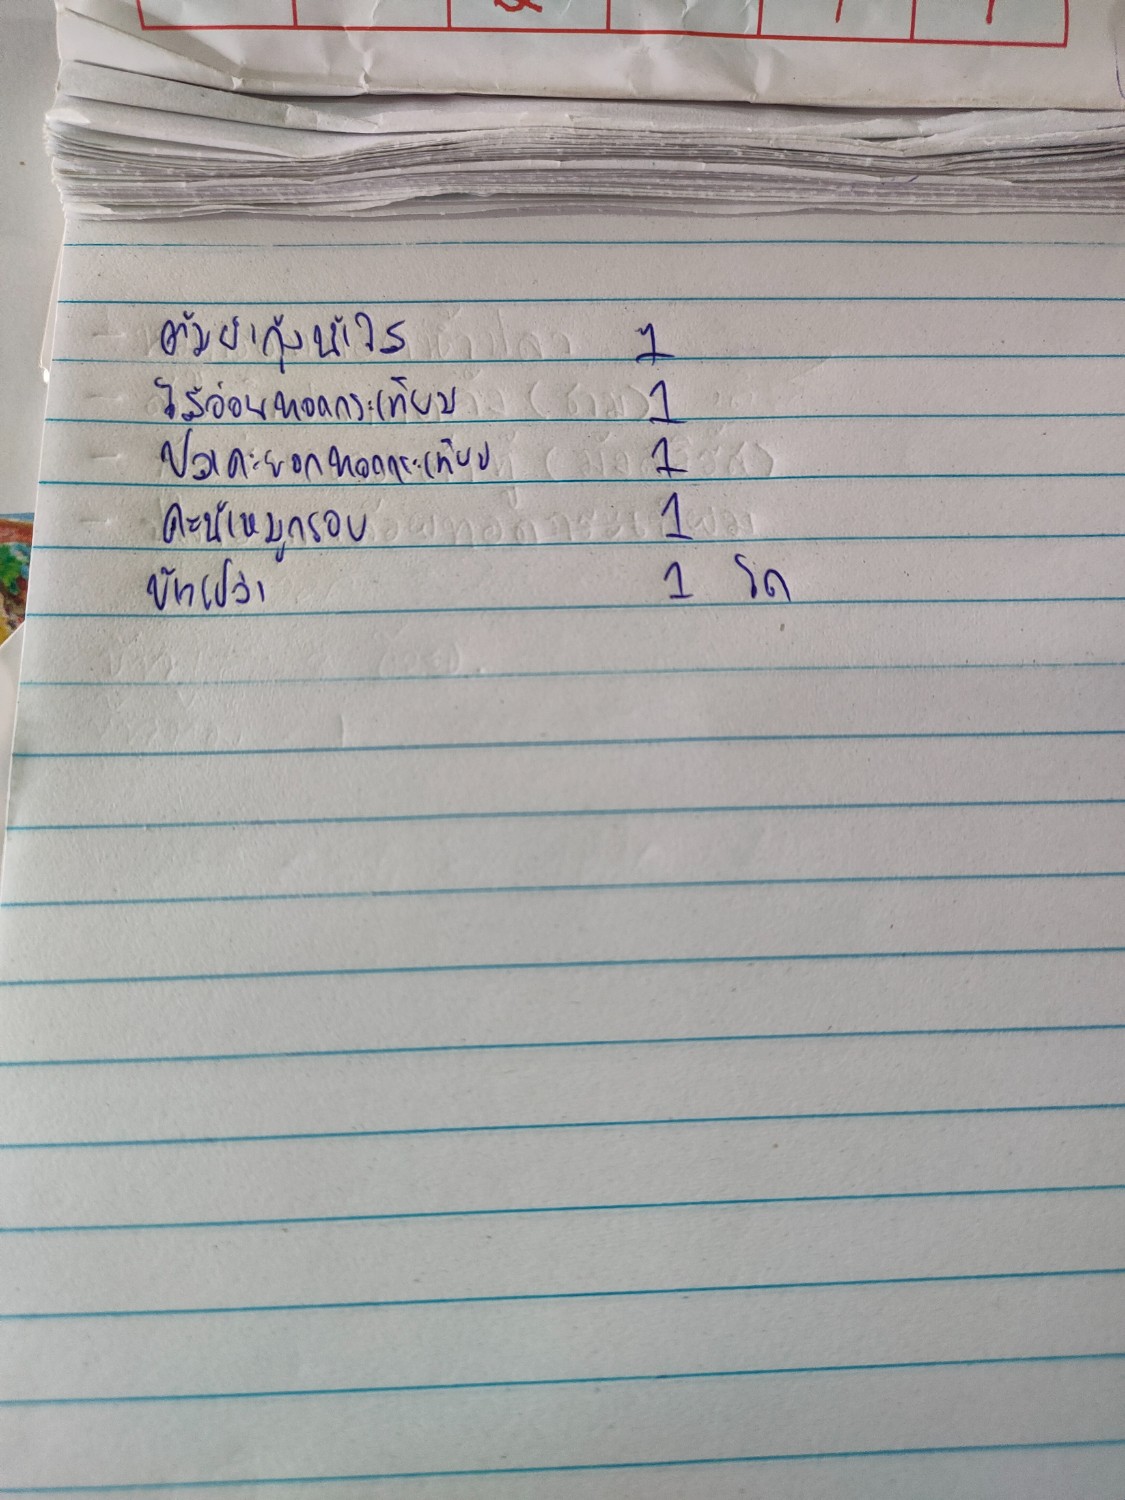 ต้มยำกุ้งน้ำใส 1
ไส้อ่อนทอดกระเทียม 1
ปลาคะยอกทอดกระเทียม 1
คะน้าหมูกรอบ 1
ข้าวเปล่า 1 โถ